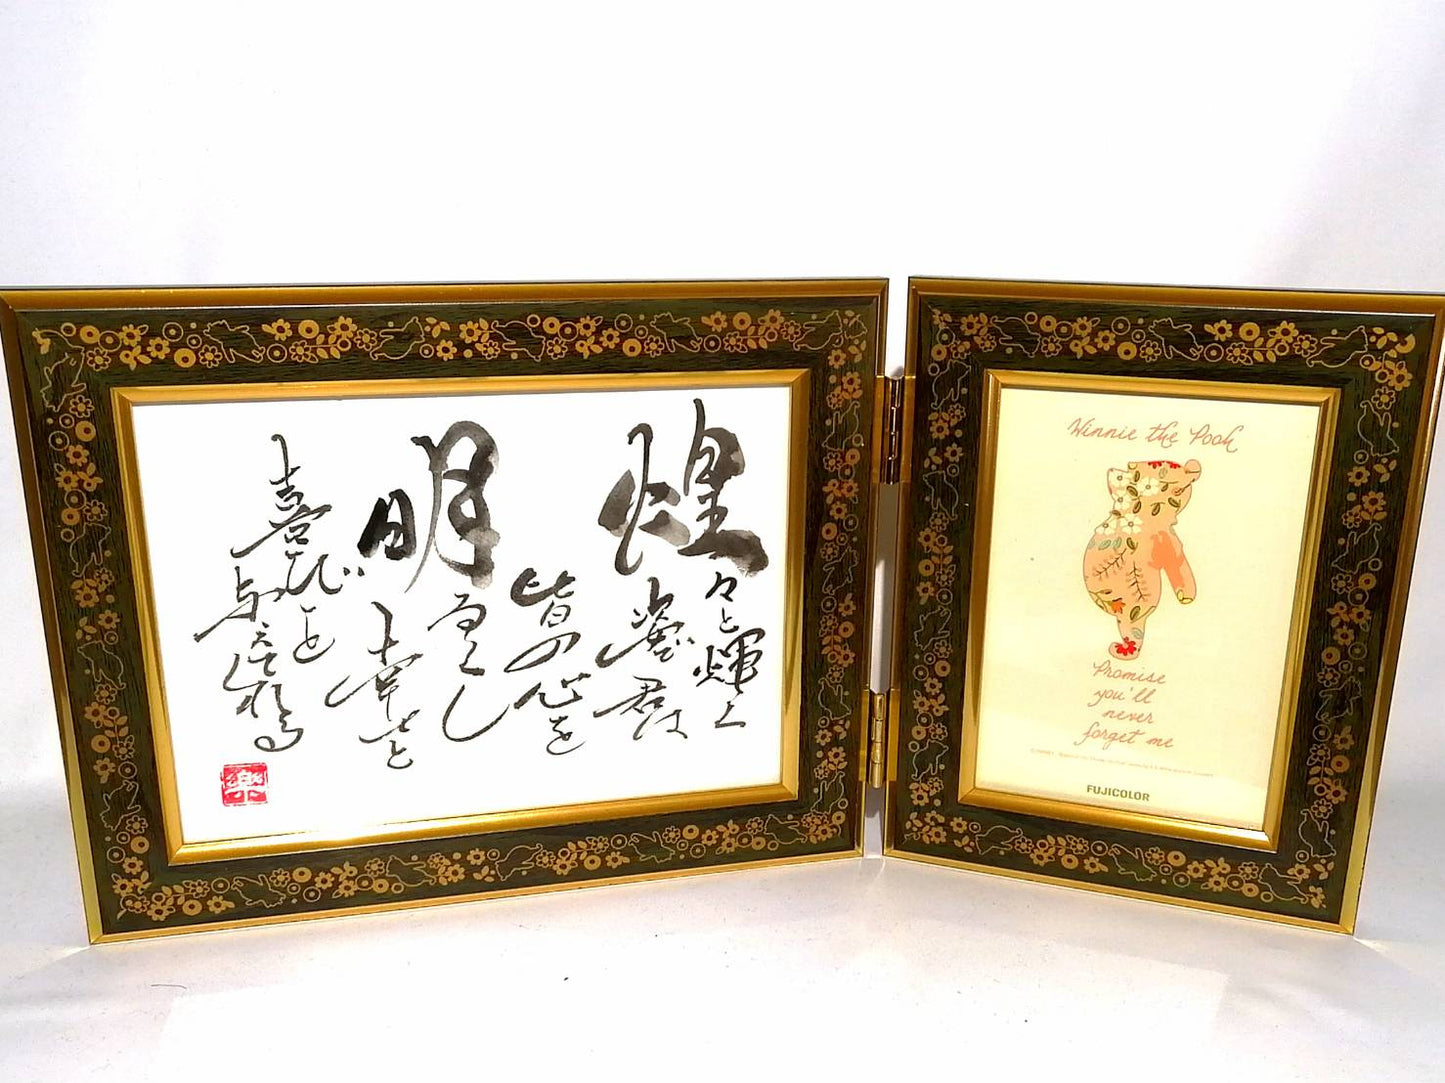 煌々と輝く
姿で君は
皆の心を
明るくし
幸せと
喜びを
与える
樂
Winnie the Pooh
Promise
you'll
never
forget me
FUJICOLOR